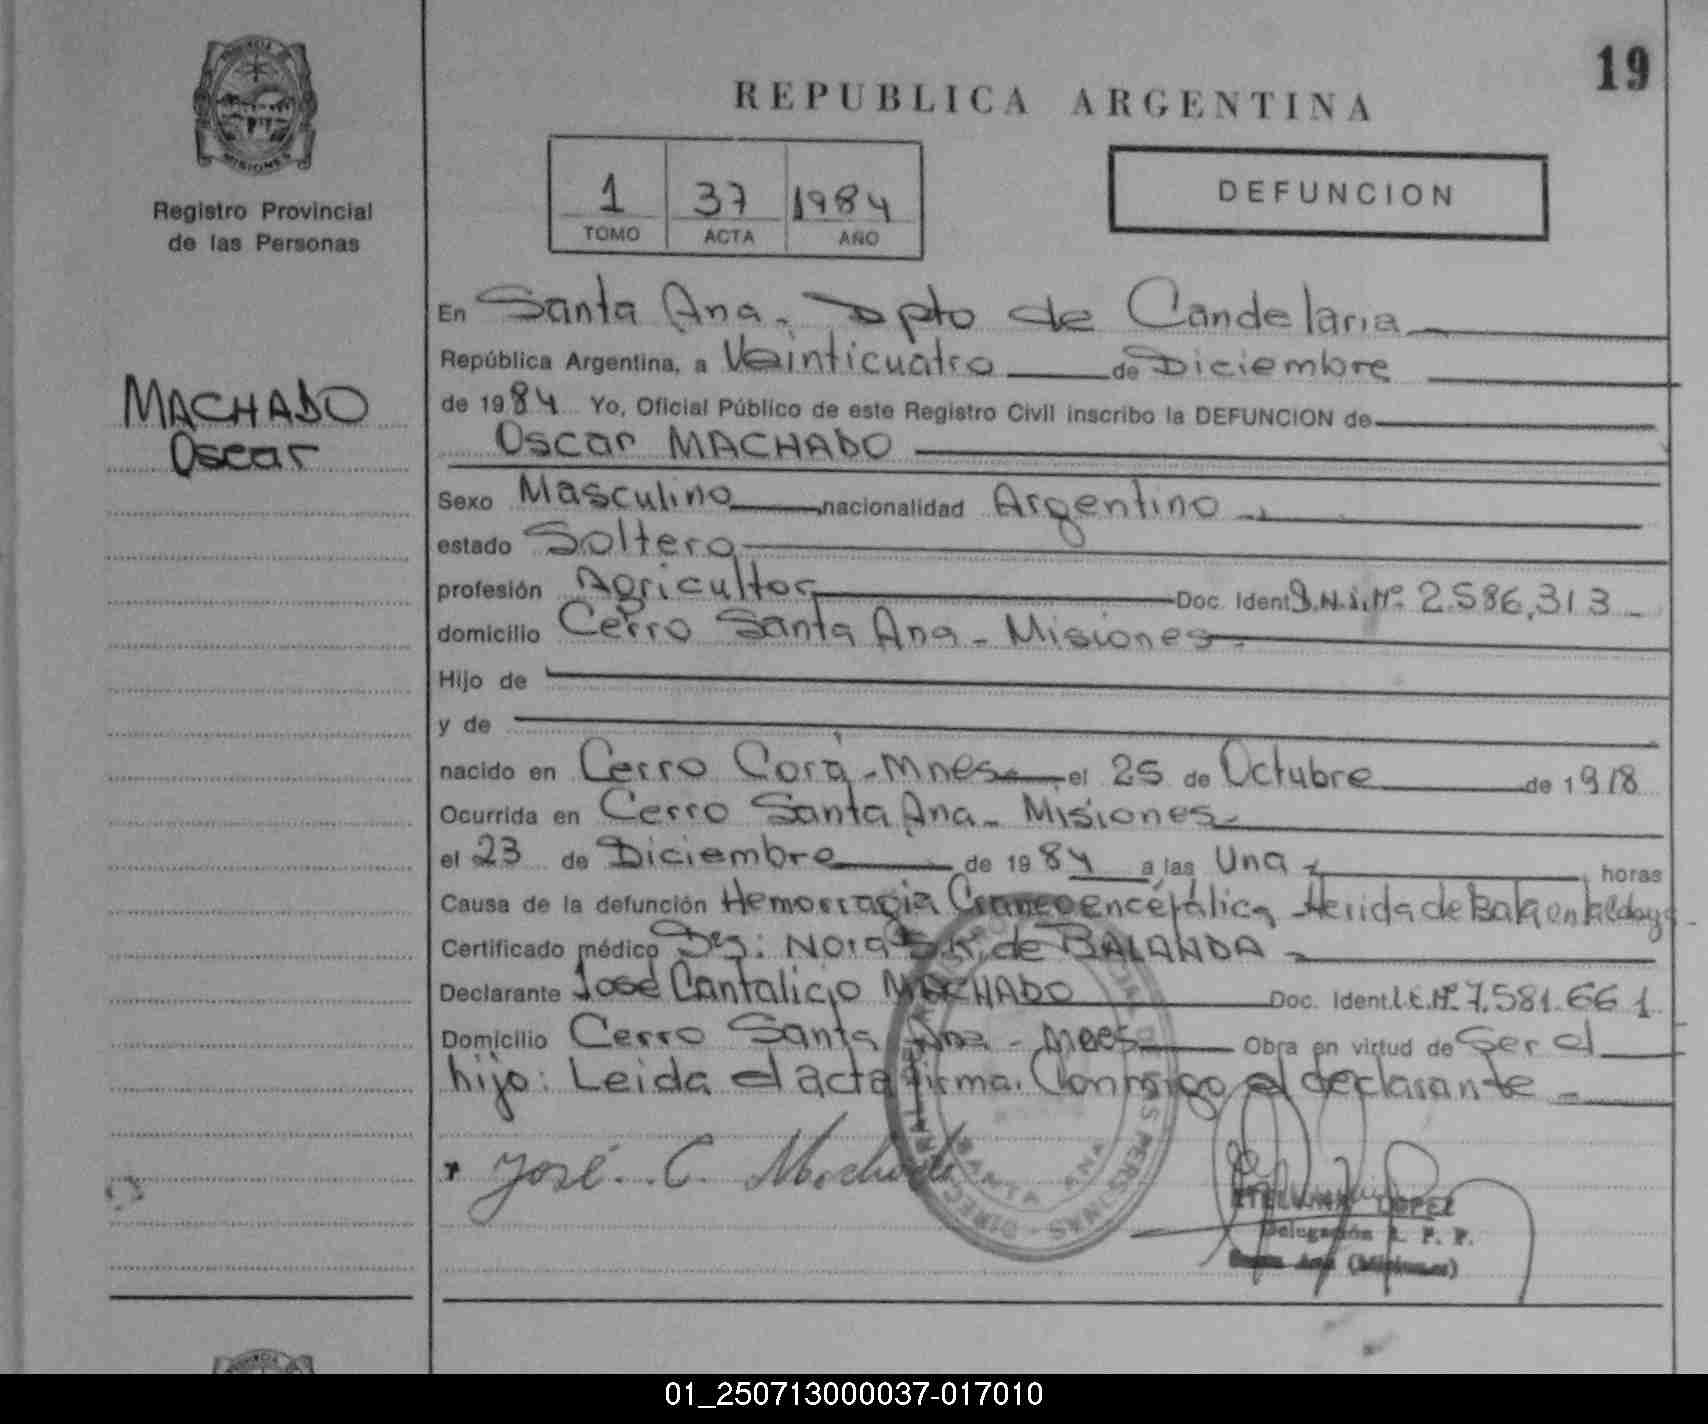 19
PROVINCIA DE
MISIONES
REPUBLICA ARGENTINA
1 37 1984
TOMO ACTA AÑO
DEFUNCION
Registro Provincial
de las Personas
MACHADO
Oscar
En Santa Ana. Dpto de Candelaria
República Argentina, a Veinticuatro de Diciembre
de 1984 Yo, Oficial Público de este Registro Civil inscribo la DEFUNCION de
Oscar MACHADO
Sexo Masculino nacionalidad Argentino
estado Soltero
profesión Agricultor Doc. Ident D.N.I. Nº 2.586.313
domicilio Cerro Santa Ana - Misiones
Hijo de
y de
nacido en Cerro Corá - Mnes. el 25 de Octubre de 1918
Ocurrida en Cerro Santa Ana - Misiones
el 23 de Diciembre de 1984 a las Una horas
Causa de la defunción Hemorragia Craneoencefálica Herida de Bala en
Certificado médico Nora de BALANDA
Declarante José Cantalicio MACHADO Doc. Ident. L.E. Nº 7.581.661
Domicilio Cerro Santa Ana - Mnes Obra en virtud de Ser el
hijo: Leida el acta firma. Conmigo el declarante
José. C. Machado
SANTA ANA
DE LAS PERSONAS - DIREC
LOPEZ
Delegación R. P. P.
Santa Ana (Misiones)
01_250713000037-017010